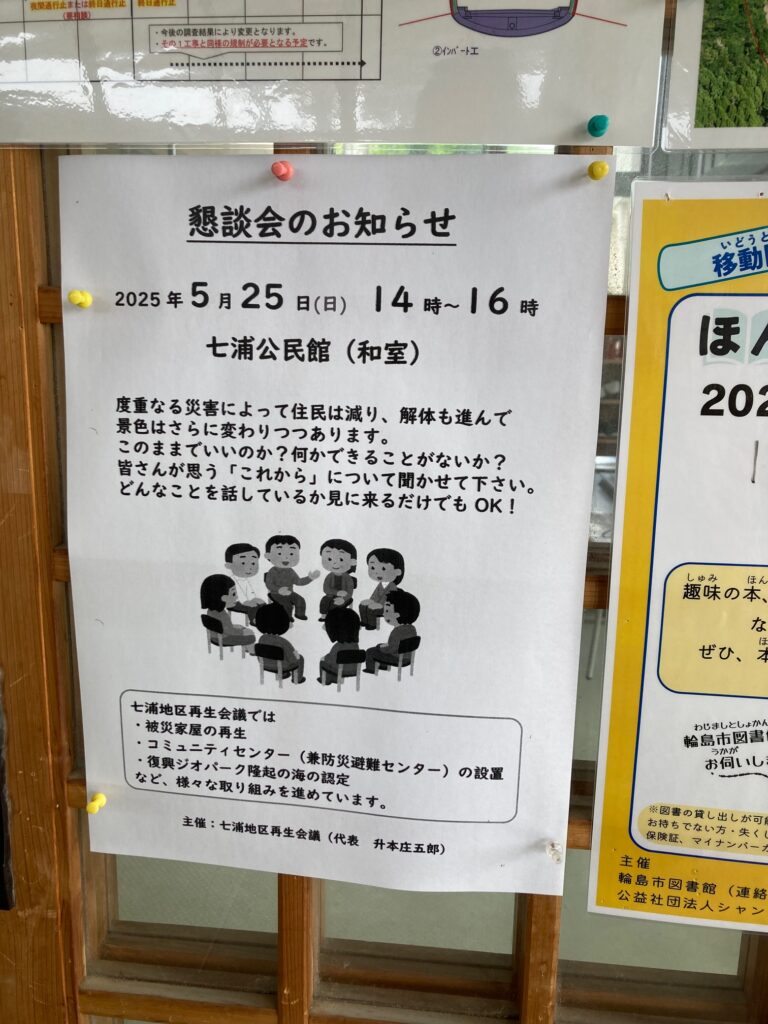 夜間通行止または終日通行止
(要相談)
終日通行止
・今後の調査結果により変更となります。
・その1工事と同様の規制が必要となる予定です。
②インバート工
懇談会のお知らせ
2025年5月25日(日) 14時～16時
七浦公民館（和室）
度重なる災害によって住民は減り、解体も進んで
景色はさらに変わりつつあります。
このままでいいのか？何かできることがないか？
皆さんが思う「これから」について聞かせて下さい。
どんなことを話しているか見に来るだけでもOK！
七浦地区再生会議では
・被災家屋の再生
・コミュニティセンター（兼防災避難センター）の設置
・復興ジオパーク隆起の海の認定
など、様々な取り組みを進めています。
主催：七浦地区再生会議（代表　升本庄五郎）
いどうと
移動
ほん
202
しゅみ ほん
趣味の本、
な
ぜひ、本
わじましとしょかん
輪島市図書館
うかが
お伺いし
※図書の貸し出しが可能
お持ちでない方・失くし
保険証、マイナンバーカ
主催
輪島市図書館（連絡
公益社団法人シャン